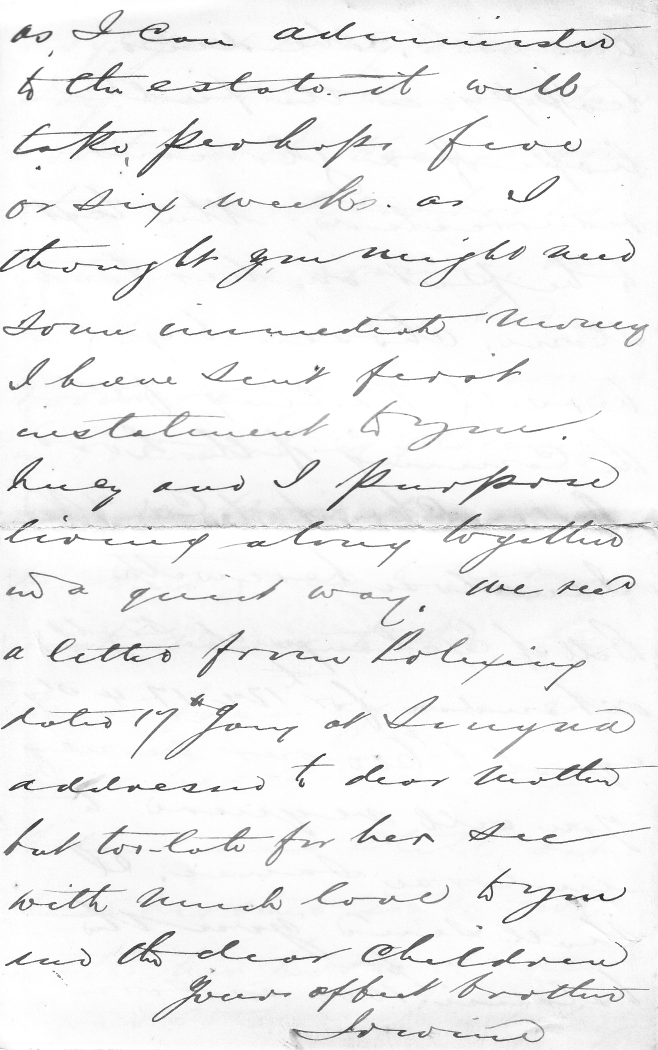 as I can administer
to the estate. it will
take perhaps five
or six weeks. as I
thought you might need
some immediate money
I have sent first
instalment to you.
Lucy and I purpose
living along together
in a quiet way. we recd
a letter from
dated 17th Jany at Smyrna
addressed to dear Mother
but too late for her see
with much love to you
and the dear children
Yours affect brother
Irwine